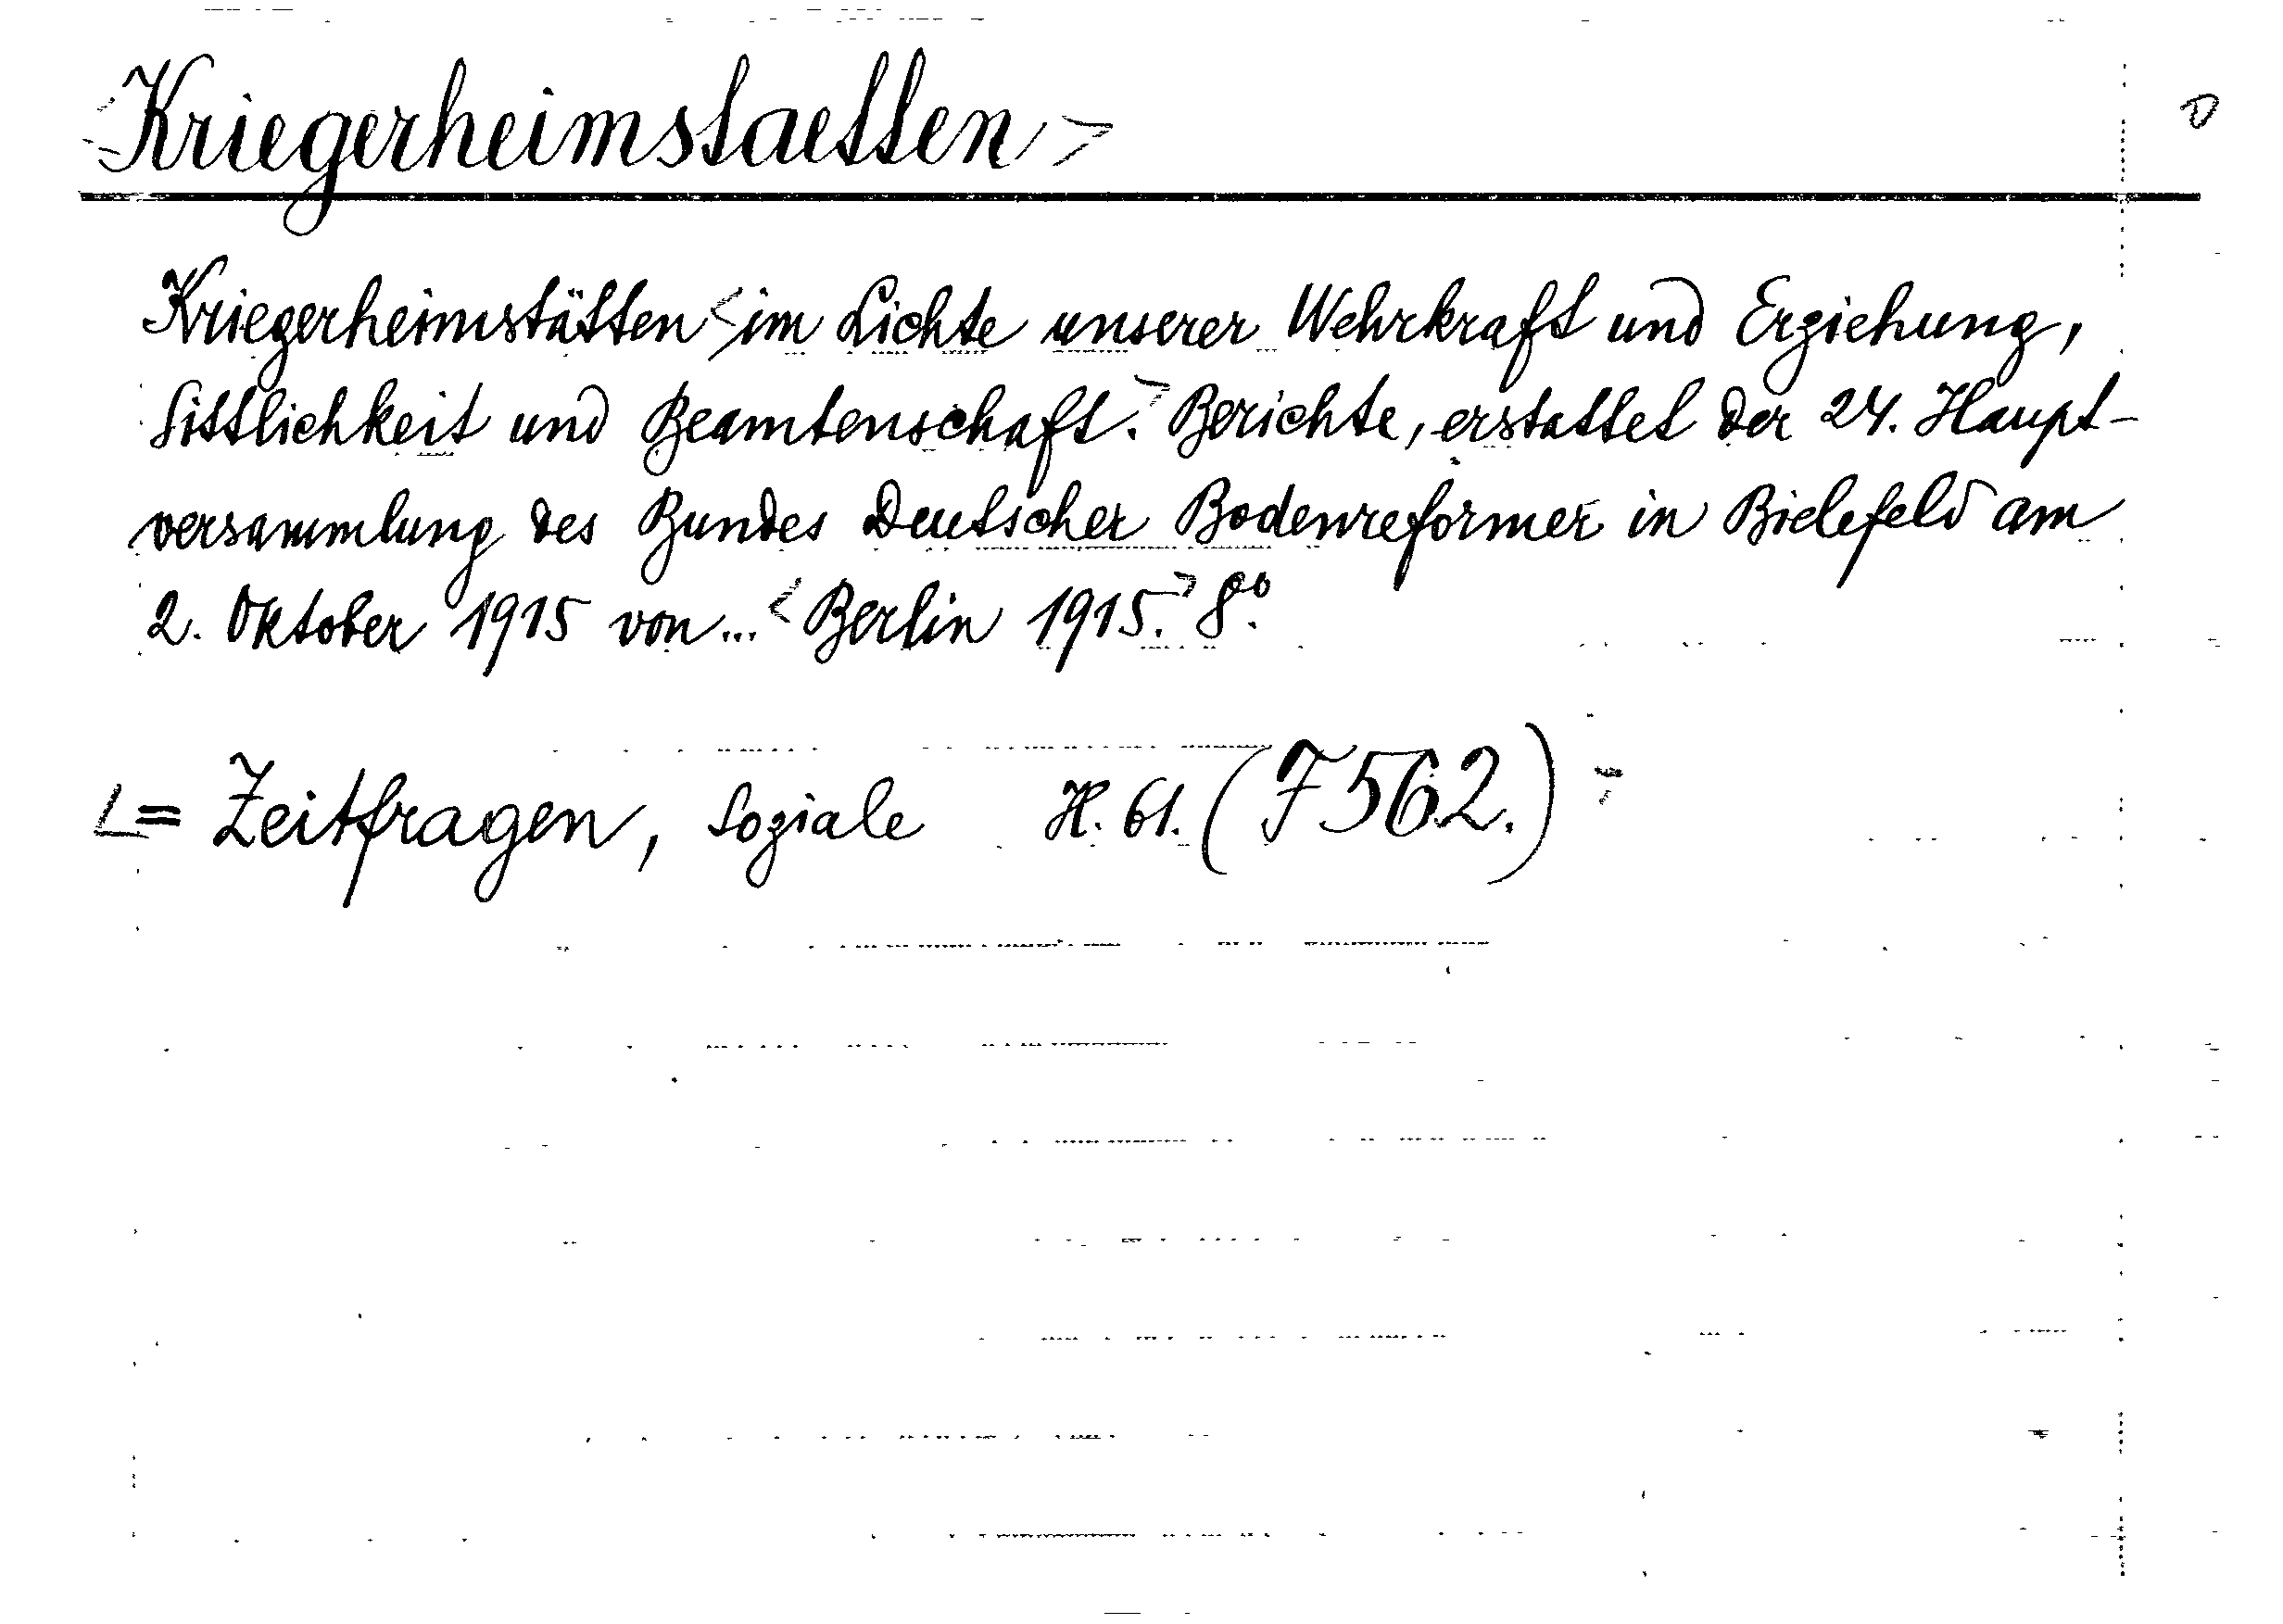 <Kriegerheimstaetten>
Kriegerheimstätten <im Lichte unserer Wehrkraft und Erziehung,
Sittlichkeit und Beamtenschaft.> Berichte, erstattet der 24. Haupt-
versammlung des Bundes Deutscher Bodenreformer in Bielefeld am
2. Oktober 1915 von... <Berlin 1915.> 8°.
<= Zeitfragen, Soziale H. 61. (F 562.)>